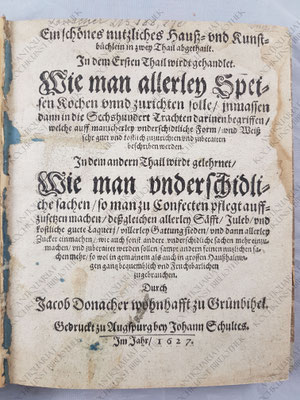 Ein schönes nutzliches Hauß- vnd Kunst-
büchlein in zwey Thail abgethailt.
In dem Ersten Thail wirdt gehandlet.
Wie man allerley Spei-
sen Kochen vnnd zurichten solle / inmassen
dann in die Sechshundert Trachten darinen begriffen /
welche auff mancherley vnderschidliche Form / vnd Weiß
sehr guet vnd köstlich zuzurichten vnd zuberaiten
beschriben werden.
In dem andern Thail wirdt gelehrnet /
Wie man vnderschidli-
che sachen / so man zu Confecten pflegt auff-
zusetzen machen / deßgleichen allerley Säfft / Juleb / vnd
köstliche guete Laquerj / vnd allerley Gattung sieden / vnd dann allerley
Zucker einmachen / wie auch sonst andere vnderschidliche sachen mehr einzu-
machen / vnd zuberaiten werden sollen / sampt andern feinen nutzlichen sa-
chen mehr / so wol in gemainem als auch in grossen Haußhaltun-
gen gantz bequemblich vnd Fruchtbarlichen
zugebrauchen.
Durch
Jacob Donacher wohnhafft zu Grünbihel.
Gedruckt zu Augspurg bey Johann Schultes.
Im Jahr / 1627.